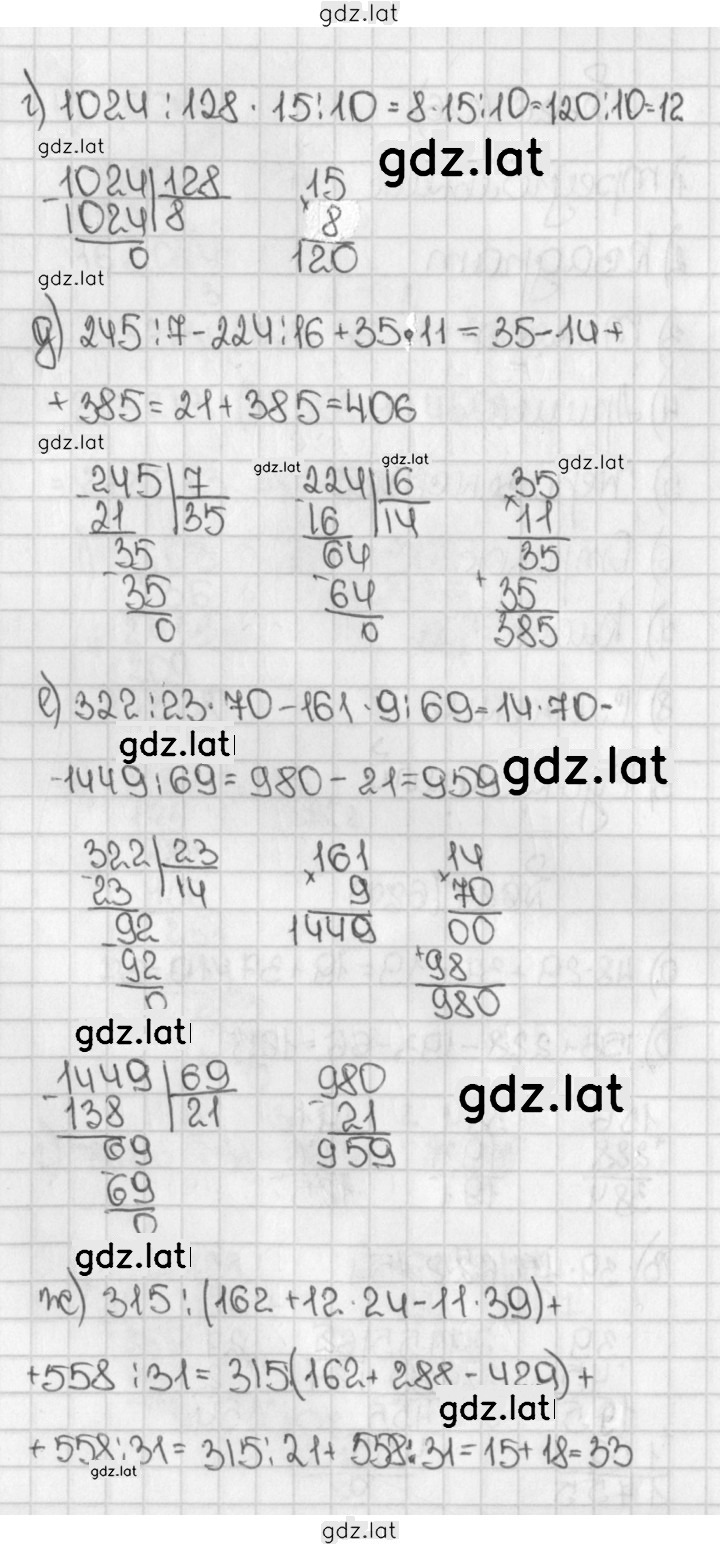 gdz.lat
г) 1024 : 128 · 15 : 10 = 8 · 15 : 10 = 120 : 10 = 12
gdz.lat gdz.lat
- 1024 | 128 15
1024 | 8 × 8
0 120
gdz.lat
д) 245 : 7 - 224 : 16 + 35 · 11 = 35 - 14 +
+ 385 = 21 + 385 = 406
gdz.lat gdz.lat gdz.lat gdz.lat
- 245 | 7 - 224 | 16 × 35
21 | 35 16 | 14 11
- 35 - 64 35
35 64 + 35
0 0 385
е) 322 : 23 · 70 - 161 · 9 : 69 = 14 · 70 -
gdz.lat gdz.lat
- 1449 : 69 = 980 - 21 = 959
- 322 | 23 × 161 × 14
23 | 14 9 70
- 92 1449 00
92 + 98
0 980
gdz.lat
- 1449 | 69 - 980 gdz.lat
138 | 21 21
- 69 959
69
0
gdz.lat
ж) 315 : (162 + 12 · 24 - 11 · 39) +
+ 558 : 31 = 315 (162 + 288 - 429) +
gdz.lat
+ 558 : 31 = 315 : 21 + 558 : 31 = 15 + 18 = 33
gdz.lat
gdz.lat